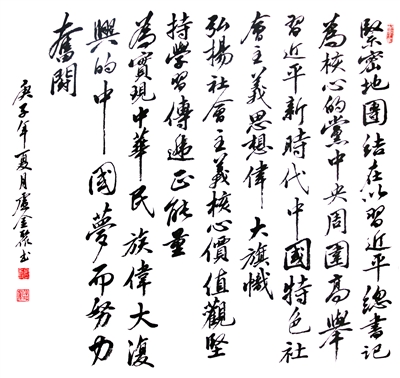 緊密地團結在以習近平總書記
為核心的黨中央周圍高舉
習近平新時代中國特色社
會主義思想偉大旗幟
弘揚社會主義核心價值觀堅
持學習傳遞正能量
為實現中華民族偉大復
興的中國夢而努力
奮鬪
庚子年夏月唐金聚书